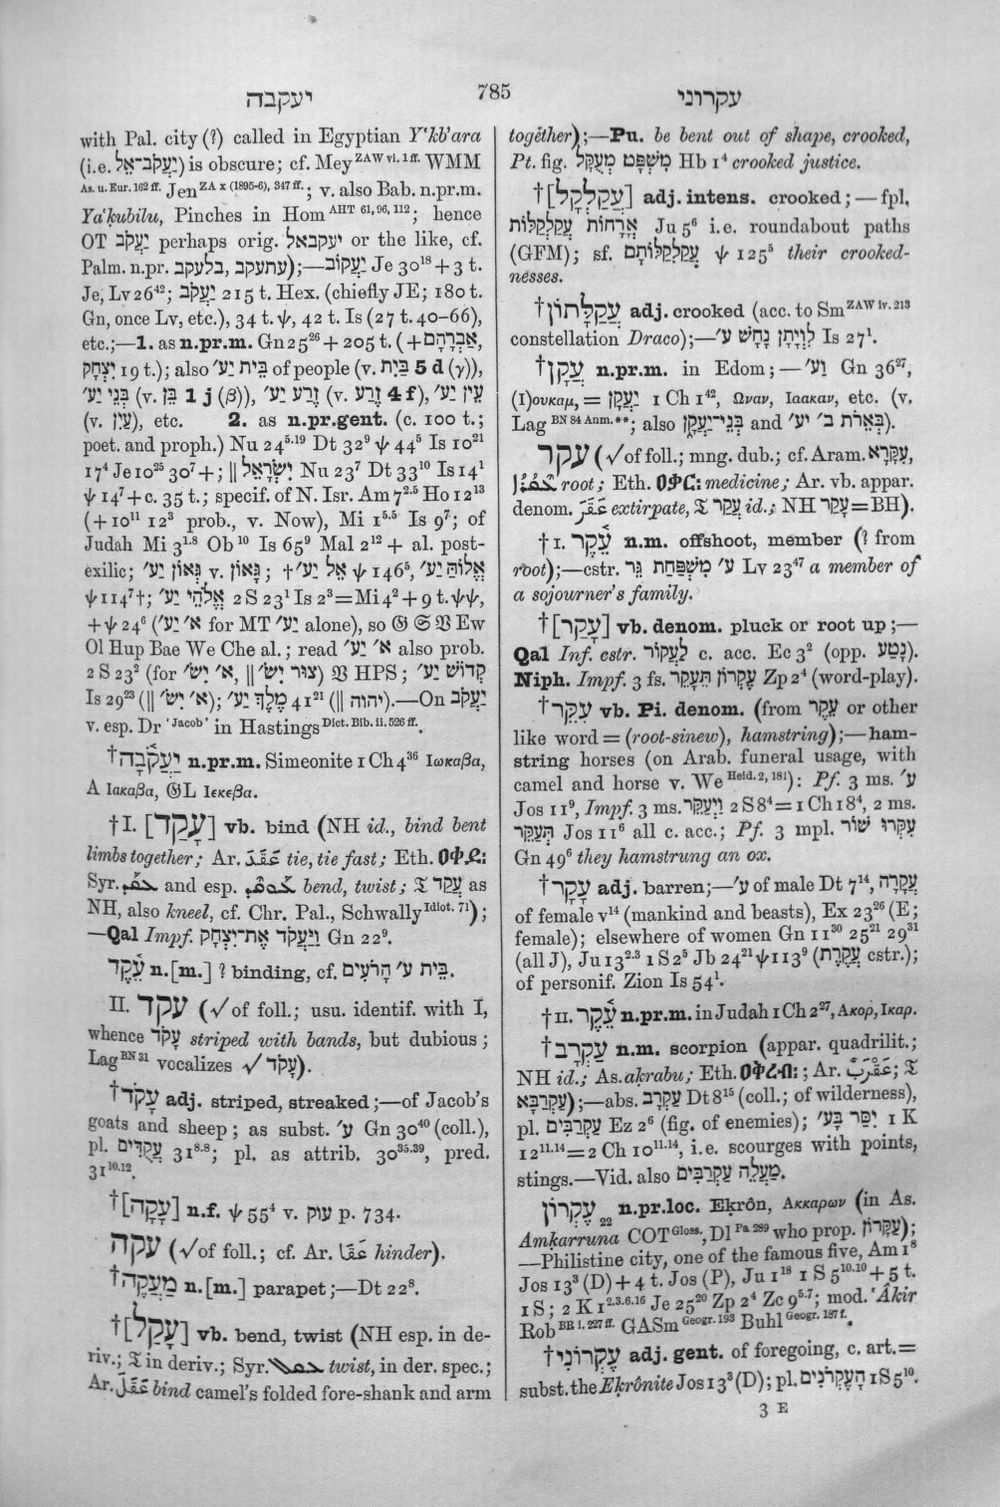 יעקבה
785
עקרוני
with Pal. city (?) called in Egyptian Y‘ḳb’ara
(i.e. יַעֲקֹב־אֵל) is obscure; cf. Mey ZAW vi. 1 ff. WMM
As. u. Eur. 162 ff. Jen ZA x (1895-6), 347 ff.; v. also Bab. n.pr.m.
Ya‘ḳubilu, Pinches in Hom AHT 61, 96, 112; hence
OT יַעֲקֹב perhaps orig. יעקבאל or the like, cf.
Palm. n.pr. עתעקב, בלעקב);—יַעֲקוֹב Je 30¹⁸ + 3 t.
Je, Lv 26⁴²; יַעֲקֹב 215 t. Hex. (chiefly JE; 180 t.
Gn, once Lv, etc.), 34 t. ψ, 42 t. Is (27 t. 40–66),
etc.;—1. as n.pr.m. Gn 25²⁶ + 205 t. (+ אַבְרָהָם,
יִצְחָק 19 t.); also בֵּית יַע׳ of people (v. בַּיִת 5 d (γ)),
בְּנֵי יַע׳ (v. בֵּן 1 j (β)), זֶרַע יַע׳ (v. זֶרַע 4 f), עֵין יַע׳
(v. עַיִן), etc. 2. as n.pr.gent. (c. 100 t.;
poet. and proph.) Nu 24⁵·¹⁹ Dt 32⁹ ψ 44⁵ Is 10²¹
17⁴ Je 10²⁵ 30⁷ +; ‖ יִשְׂרָאֵל Nu 23⁷ Dt 33¹⁰ Is 14¹
ψ 14⁷ + c. 35 t.; specif. of N. Isr. Am 7²·⁵ Ho 12¹³
(+ 10¹¹ 12³ prob., v. Now), Mi 1⁵·⁵ Is 9⁷; of
Judah Mi 3¹·⁸ Ob¹⁰ Is 65⁹ Mal 2¹² + al. post-
exilic; גְּאוֹן יַע׳ v. גָּאוֹן; †אֵל יַע׳ ψ 146⁵, אֱלוֹהַּ יַע׳
ψ 114⁷†; אֱלֹהֵי יַע׳ 2 S 23¹ Is 2³ = Mi 4² + 9 t. ψψ,
+ ψ 24⁶ (א׳ יַע׳ for MT יַע׳ alone), so 𝔊 𝔖 𝔙 Ew
Ol Hup Bae We Che al.; read א׳ יַע׳ also prob.
2 S 23² (for א׳ יִשׂ׳, ‖ צוּר יִשׂ׳) 𝔙 HPS; קְדוֹשׁ יַע׳
Is 29²³ (‖ א׳ יִשׂ׳); מֶלֶךְ יַע׳ 41²¹ (‖ יהוה).—On יַעֲקֹב
v. esp. Dr ‘Jacob’ in Hastings Dict. Bib. ii. 526 ff.
†יַעֲקֹבָה n.pr.m. Simeonite 1 Ch 4³⁶ Ιωκαβα,
A Ιακαβα, 𝔊L Ιεκεβα.
†I. [עָקַד] vb. bind (NH id., bind bent
limbs together; Ar. عَقَدَ tie, tie fast; Eth. ዐቀደ:
Syr. ܥܩܕ and esp. ܥܩܕ bend, twist; 𝔗 עֲקַד as
NH, also kneel, cf. Chr. Pal., Schwally Idiot. 71);
—Qal Impf. וַיַּעֲקֹד אֶת־יִצְחָק Gn 22⁹.
עֵקֶד n.[m.] ? binding, cf. בֵּית ע׳ הָרֹעִים.
II. עקד (√of foll.; usu. identif. with I,
whence עָקֹד striped with bands, but dubious;
Lag BN 31 vocalizes √ עָקֹד).
†עָקֹד adj. striped, streaked;—of Jacob’s
goats and sheep; as subst. ע׳ Gn 30⁴⁰ (coll.),
pl. עֲקֻדִּים 31⁸·⁸; pl. as attrib. 30³⁵·³⁹, pred.
31¹⁰·¹².
†[עָקָה] n.f. ψ 55⁴ v. עוק p. 734.
עקה (√of foll.; cf. Ar. عَقَا hinder).
†מַעֲקֶה n.[m.] parapet;—Dt 22⁸.
†[עָקַל] vb. bend, twist (NH esp. in de-
riv.; 𝔗 in deriv.; Syr. ܥܩܠ twist, in der. spec.;
Ar. عَقَلَ bind camel’s folded fore-shank and arm
together);—Pu. be bent out of shape, crooked,
Pt. fig. מִשְׁפָּט מְעֻקָּל Hb 1⁴ crooked justice.
†[עֲקַלְקַל] adj. intens. crooked;—fpl.
אֳרָחוֹת עֲקַלְקַלּוֹת Ju 5⁶ i.e. roundabout paths
(GFM); sf. עֲקַלְקַלּוֹתָם ψ 125⁵ their crooked-
nesses.
†עֲקַלָּתוֹן adj. crooked (acc. to Sm ZAW iv. 213
constellation Draco);—לִוְיָתָן נָחָשׁ ע׳ Is 27¹.
†עָקָן n.pr.m. in Edom;—וַע׳ Gn 36²⁷,
(Ι)ουκαμ, = יַעֲקָן 1 Ch 1⁴², Ωναν, Ιαακαν, etc. (v.
Lag BN 84 Anm.**; also בְּנֵי־יַעֲקָן and בְּאֵרֹת ב׳ יע׳).
עקר (√of foll.; mng. dub.; cf. Aram. עִקָּרָא,
ܥܩܪܐ root; Eth. ዐቃር: medicine; Ar. vb. appar.
denom. عَقَرَ extirpate, 𝔗 עֲקַר id.; NH עָקַר = BH).
†I. עֵקֶר n.m. offshoot, member (? from
root);—cstr. ע׳ מִשְׁפַּחַת גֵּר Lv 23⁴⁷ a member of
a sojourner’s family.
†[עָקַר] vb. denom. pluck or root up;—
Qal Inf. cstr. לַעֲקוֹר c. acc. Ec 3² (opp. נָטַע).
Niph. Impf. 3 fs. עֶקְרוֹן תֵּעָקֵר Zp 2⁴ (word-play).
†עִקֵּר vb. Pi. denom. (from עֵקֶר or other
like word = (root-sinew), hamstring);—ham-
string horses (on Arab. funeral usage, with
camel and horse v. We Heid. 2, 181): Pf. 3 ms. ע׳
Jos 11⁹, Impf. 3 ms. וַיְעַקֵּר 2 S 8⁴ = 1 Ch 18⁴, 2 ms.
תְּעַקֵּר Jos 11⁶ all c. acc.; Pf. 3 mpl. עִקְּרוּ שׁוֹר
Gn 49⁶ they hamstrung an ox.
†עָקָר adj. barren;—ע׳ of male Dt 7¹⁴, עֲקָרָה
of female v¹⁴ (mankind and beasts), Ex 23²⁶ (E;
female); elsewhere of women Gn 11³⁰ 25²¹ 29³¹
(all J), Ju 13²·³ 1 S 2⁵ Jb 24²¹ ψ 113⁹ (עֲקֶרֶת cstr.);
of personif. Zion Is 54¹.
†II. עֵקֶר n.pr.m. in Judah 1 Ch 2²⁷, Ακορ, Ικαρ.
†עַקְרָב n.m. scorpion (appar. quadrilit.;
NH id.; As. aḳrabu; Eth. ዐቅረብ: ; Ar. عَقْرَب; 𝔗
עַקְרַבָּא);—abs. עַקְרָב Dt 8¹⁵ (coll.; of wilderness),
pl. עַקְרַבִּים Ez 2⁶ (fig. of enemies); יִסַּר בָּע׳ 1 K
12¹¹·¹⁴ = 2 Ch 10¹¹·¹⁴, i.e. scourges with points,
stings.—Vid. also מַעֲלֵה עַקְרַבִּים.
עֶקְרוֹן ₂₂ n.pr.loc. Eḳrôn, Ακκαρων (in As.
Amḳarruna COT Gloss., Dl Pa 289 who prop. עַקָּרוֹן);
—Philistine city, one of the famous five, Am 1⁸
Jos 13³ (D) + 4 t. Jos (P), Ju 1¹⁸ 1 S 5¹⁰·¹⁰ + 5 t.
1 S; 2 K 1²·³·⁶·¹⁶ Je 25²⁰ Zp 2⁴ Zc 9⁵·⁷; mod. ‘Âkir
Rob BR i. 227 ff. GASm Geogr. 193 Buhl Geogr. 187 f.
†עֶקְרוֹנִי adj. gent. of foregoing, c. art. =
subst. the Eḳrônite Jos 13³ (D); pl. הָעֶקְרֹנִים 1 S 5¹⁰.
3 E